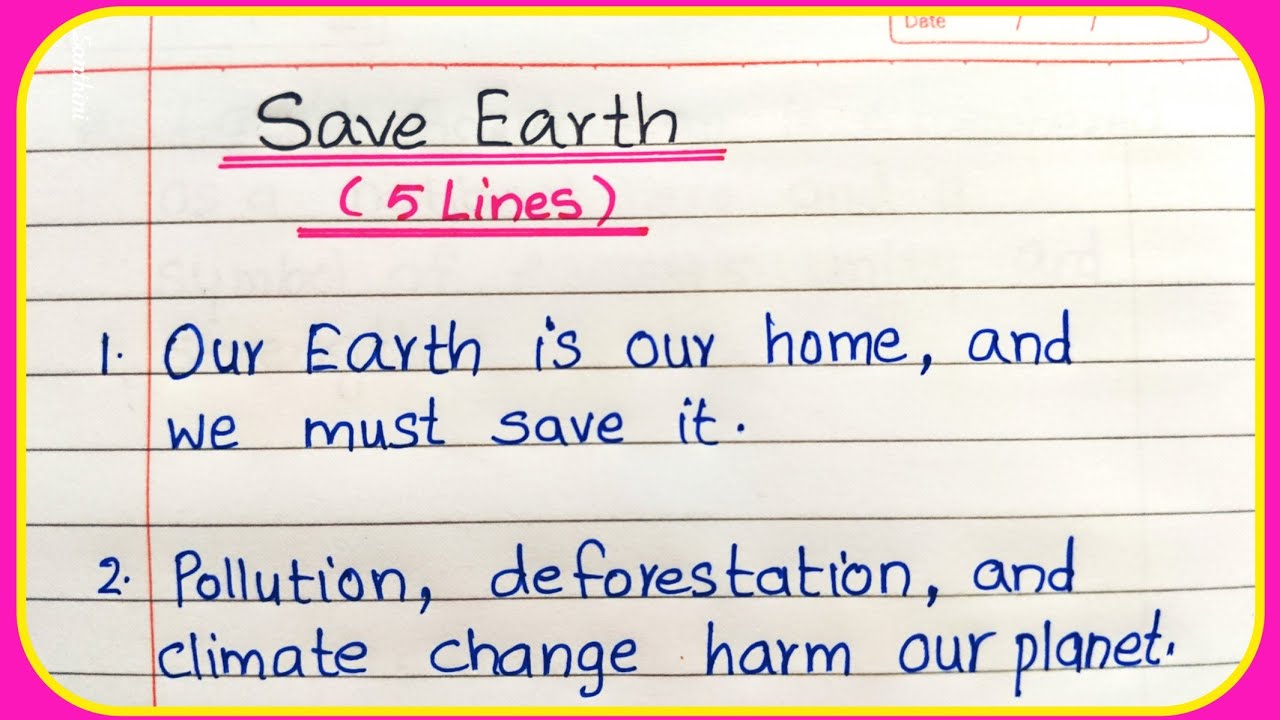 Date / /
Santhini
Save Earth
(5 Lines)
1. Our Earth is our home, and
we must save it.
2. Pollution, deforestation, and
climate change harm our planet.